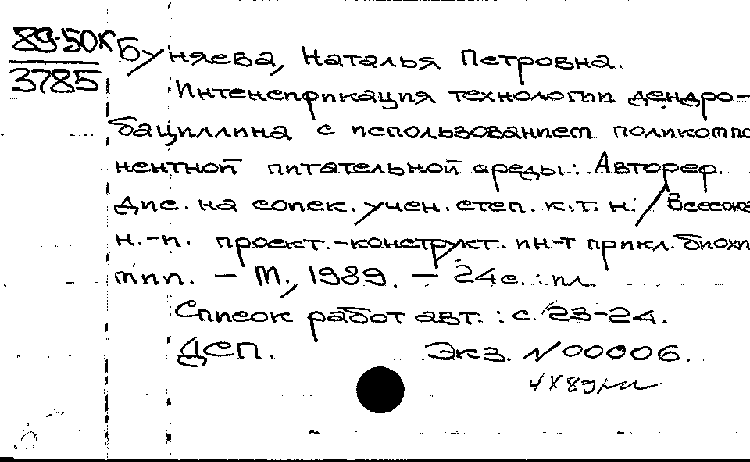 89-50К
3785
Буняева, Наталья Петровна.
Интенсификация технологии дендро-
бациллина с использованием поликомпо
нентной питательной среды: Автореф.
дис. на соиск. учен. степ. к.т.н. / Всесоюз
н.-и. проект.-конструкт. ин-т прикл. биохи
мии. - М., 1989. - 24с.: ил.
Список работ авт.: с. 23-24.
ДСП. Экз. N 00006.